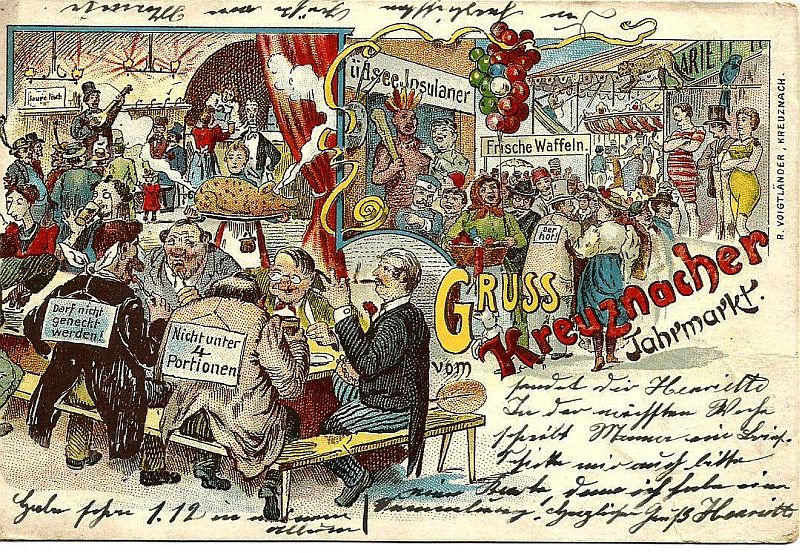 üdsee Insulaner
Frische Waffeln.
Darf nicht
geneckt
werden!
Nicht unter
4
Portionen
GRUSS
vom
Kreuznacher
Jahrmarkt.
R. VOIGTLÄNDER, KREUZNACH.
sendet dir Henriette
In der nächsten Woche
schreibt Mama ein Brief.
Schicke mir auch bitte
eine Karte, denn ich habe eine
Sammlung. Herzlicher Gruß Henriett
Habe schon 112 in meinem
Album